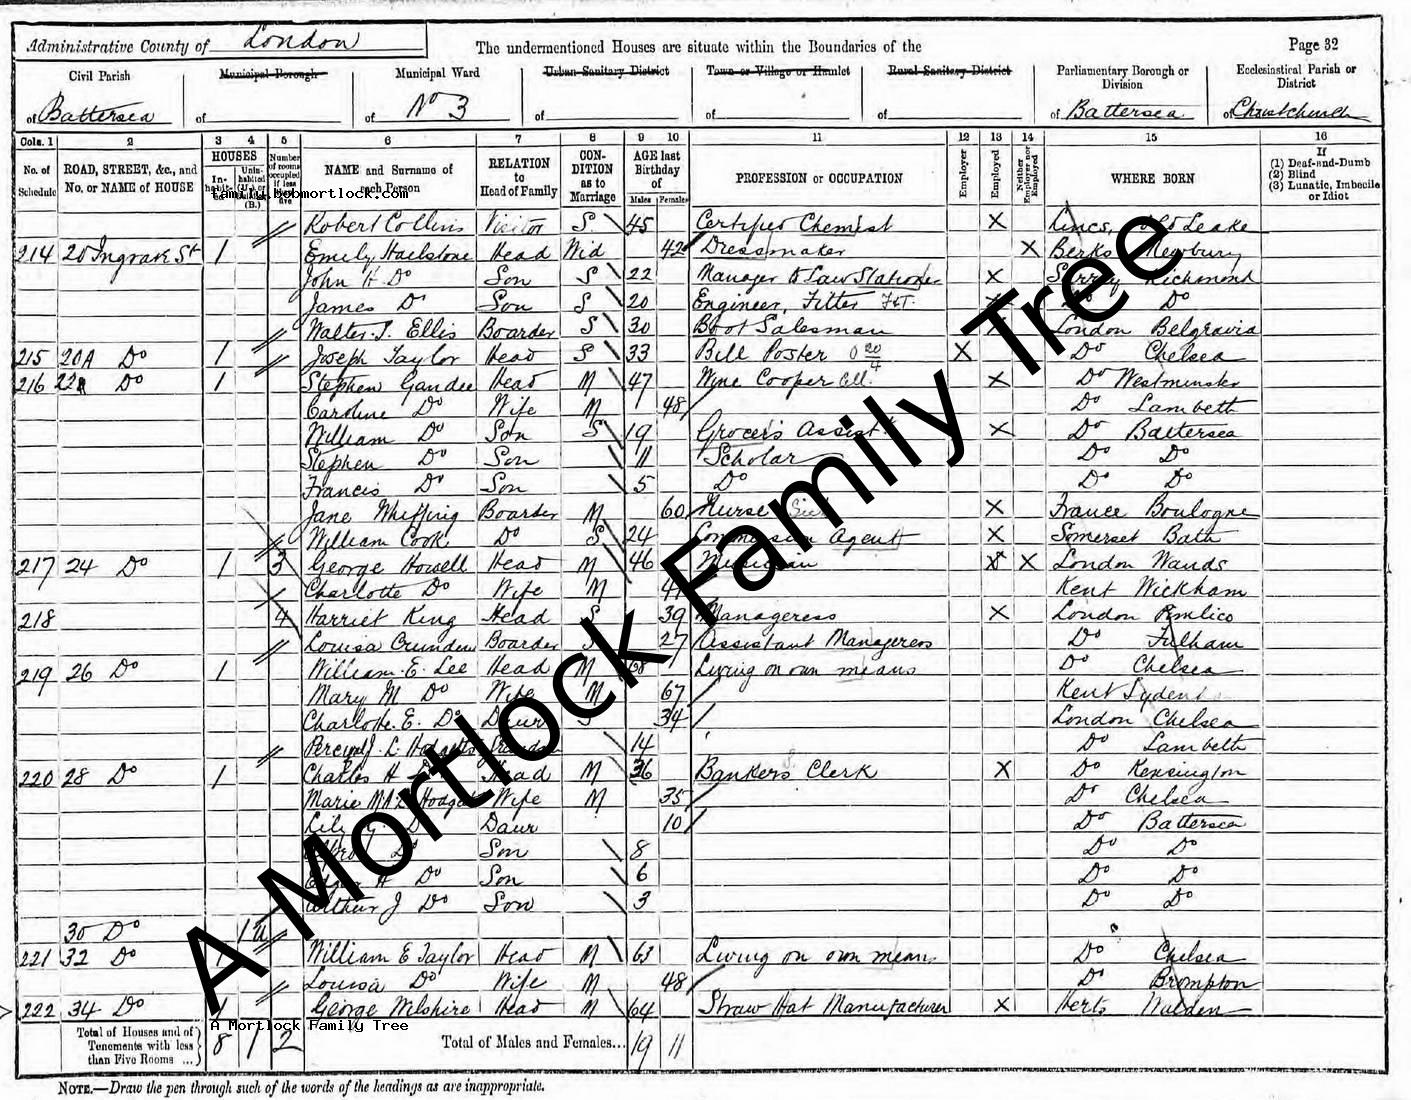 Administrative County of London
The undermentioned Houses are situate within the Boundaries of the
Page 32
Civil Parish
Municipal Borough
Municipal Ward
Urban Sanitary District
Town or Village or Hamlet
Rural Sanitary District
Parliamentary Borough or Division
Ecclesiastical Parish or District
of Battersea
of
of No 3
of
of
of
of Battersea
of Christchurch
Cols. 1 2 3 4 5 6 7 8 9 10 11 12 13 14 15 16
No. of Schedule
ROAD, STREET, &c., and No. or NAME of HOUSE
HOUSES
Number of rooms occupied if less than five
NAME and Surname of each Person
RELATION to Head of Family
CONDITION as to Marriage
AGE last Birthday of
Males Females
PROFESSION or OCCUPATION
Employer
Employed
Neither Employer nor Employed
WHERE BORN
If
(1) Deaf-and-Dumb
(2) Blind
(3) Lunatic, Imbecile or Idiot
family.bobmortlock.com
Robert Collins Visitor S 45 Certified Chemist X Lincs, Old Leake
214 20 Ingrave St 1 Emily Hailstone Head Wid 42 Dressmaker X Berks Newbury
John H Do Son S 22 Manager to Law Stationer X Surrey Richmond
James Do Son S 20 Engineer, Fitter Do Do
Walter Ellis Boarder S 30 Boot Salesman London Belgravia
215 20A Do 1 Joseph Taylor Head S 33 Bill Poster X Do Chelsea
216 22 Do 1 Stephen Gandee Head M 47 Wine Cooper Cell. X Do Westminster
Caroline Do Wife M 48 Do Lambeth
William Do Son S 19 Grocers Assist X Do Battersea
Stephen Do Son 11 Scholar Do Do
Francis Do Son 5 Do Do Do
Jane Boarder M 60 Nurse X France Boulogne
William Cook Do S 24 Commission Agent X Somerset Bath
217 24 Do 1 3 George Howell Head M 46 Musician X X London Wands
Charlotte Do Wife M Kent Wickham
218 4 Harriet King Head S 39 Manageress X London Pimlico
Louisa Boarder 27 Assistant Manageress Do Fulham
219 26 Do 1 William E. Lee Head M 68 Living on own means Do Chelsea
Mary M Do Wife M 67 Kent
Charlotte E. Do Daur S 34 London Chelsea
14 Do Lambeth
220 28 Do 1 Charles H Head M 36 Bankers Clerk X Do Kensington
Marie Wife M 35 Do Chelsea
Lily Daur 10 Do Battersea
Son 8 Do Do
Edgar H Do Son 6 Do Do
Arthur J Do Son 3 Do Do
30 Do 1 U
221 32 Do 1 William E Taylor Head M 63 Living on own means Do Chelsea
Louisa Do Wife M 48 Do Brompton
222 34 Do 1 George Wilshire Head M 64 Straw Hat Manufacturer X Herts Walden
A Mortlock Family Tree
A Mortlock Family Tree
Total of Houses and of Tenements with less than Five Rooms ... 8 1 2
Total of Males and Females... 19 11
NOTE.—Draw the pen through such of the words of the headings as are inappropriate.